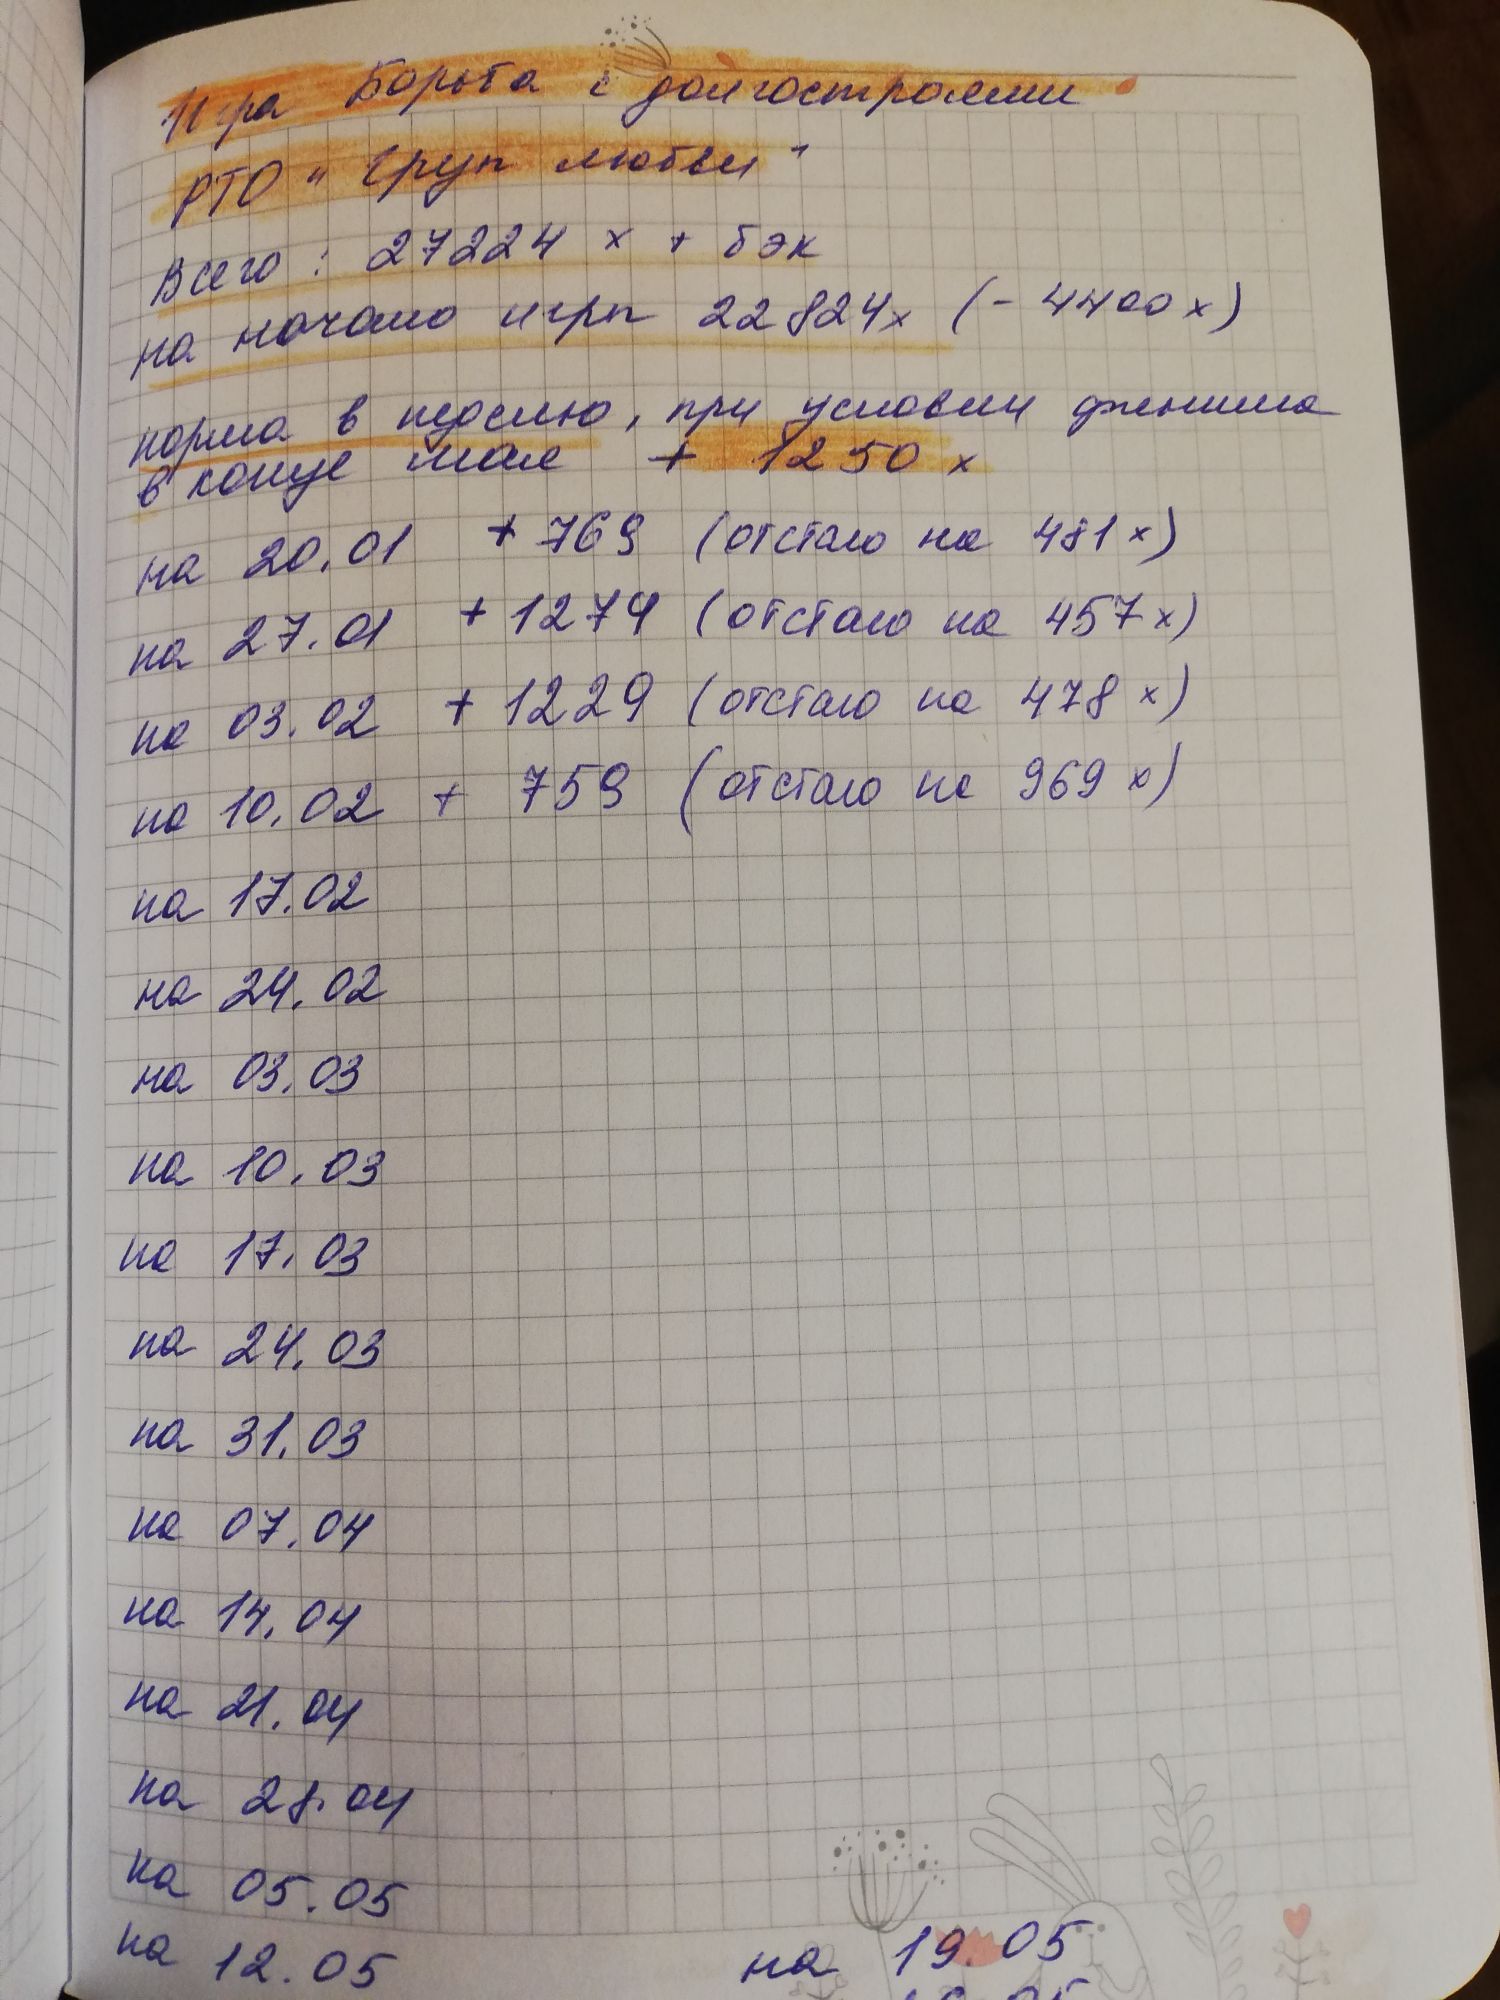 Игра Борьба с долгостроями
РТО "Груп любви"
Всего: 27224 х + бэк
на начало игры 22824х (- 4400 х)
норма в неделю, при условии финиша
в конце мая + 1250 х
на 20.01 + 769 (отстаю на 481 х)
на 27.01 + 1274 (отстаю на 457 х)
на 03.02 + 1229 (отстаю на 478 х)
на 10.02 + 759 (отстаю на 969 х)
на 17.02
на 24.02
на 03.03
на 10.03
на 17.03
на 24.03
на 31.03
на 07.04
на 14.04
на 21.04
на 28.04
на 05.05
на 12.05 на 19.05